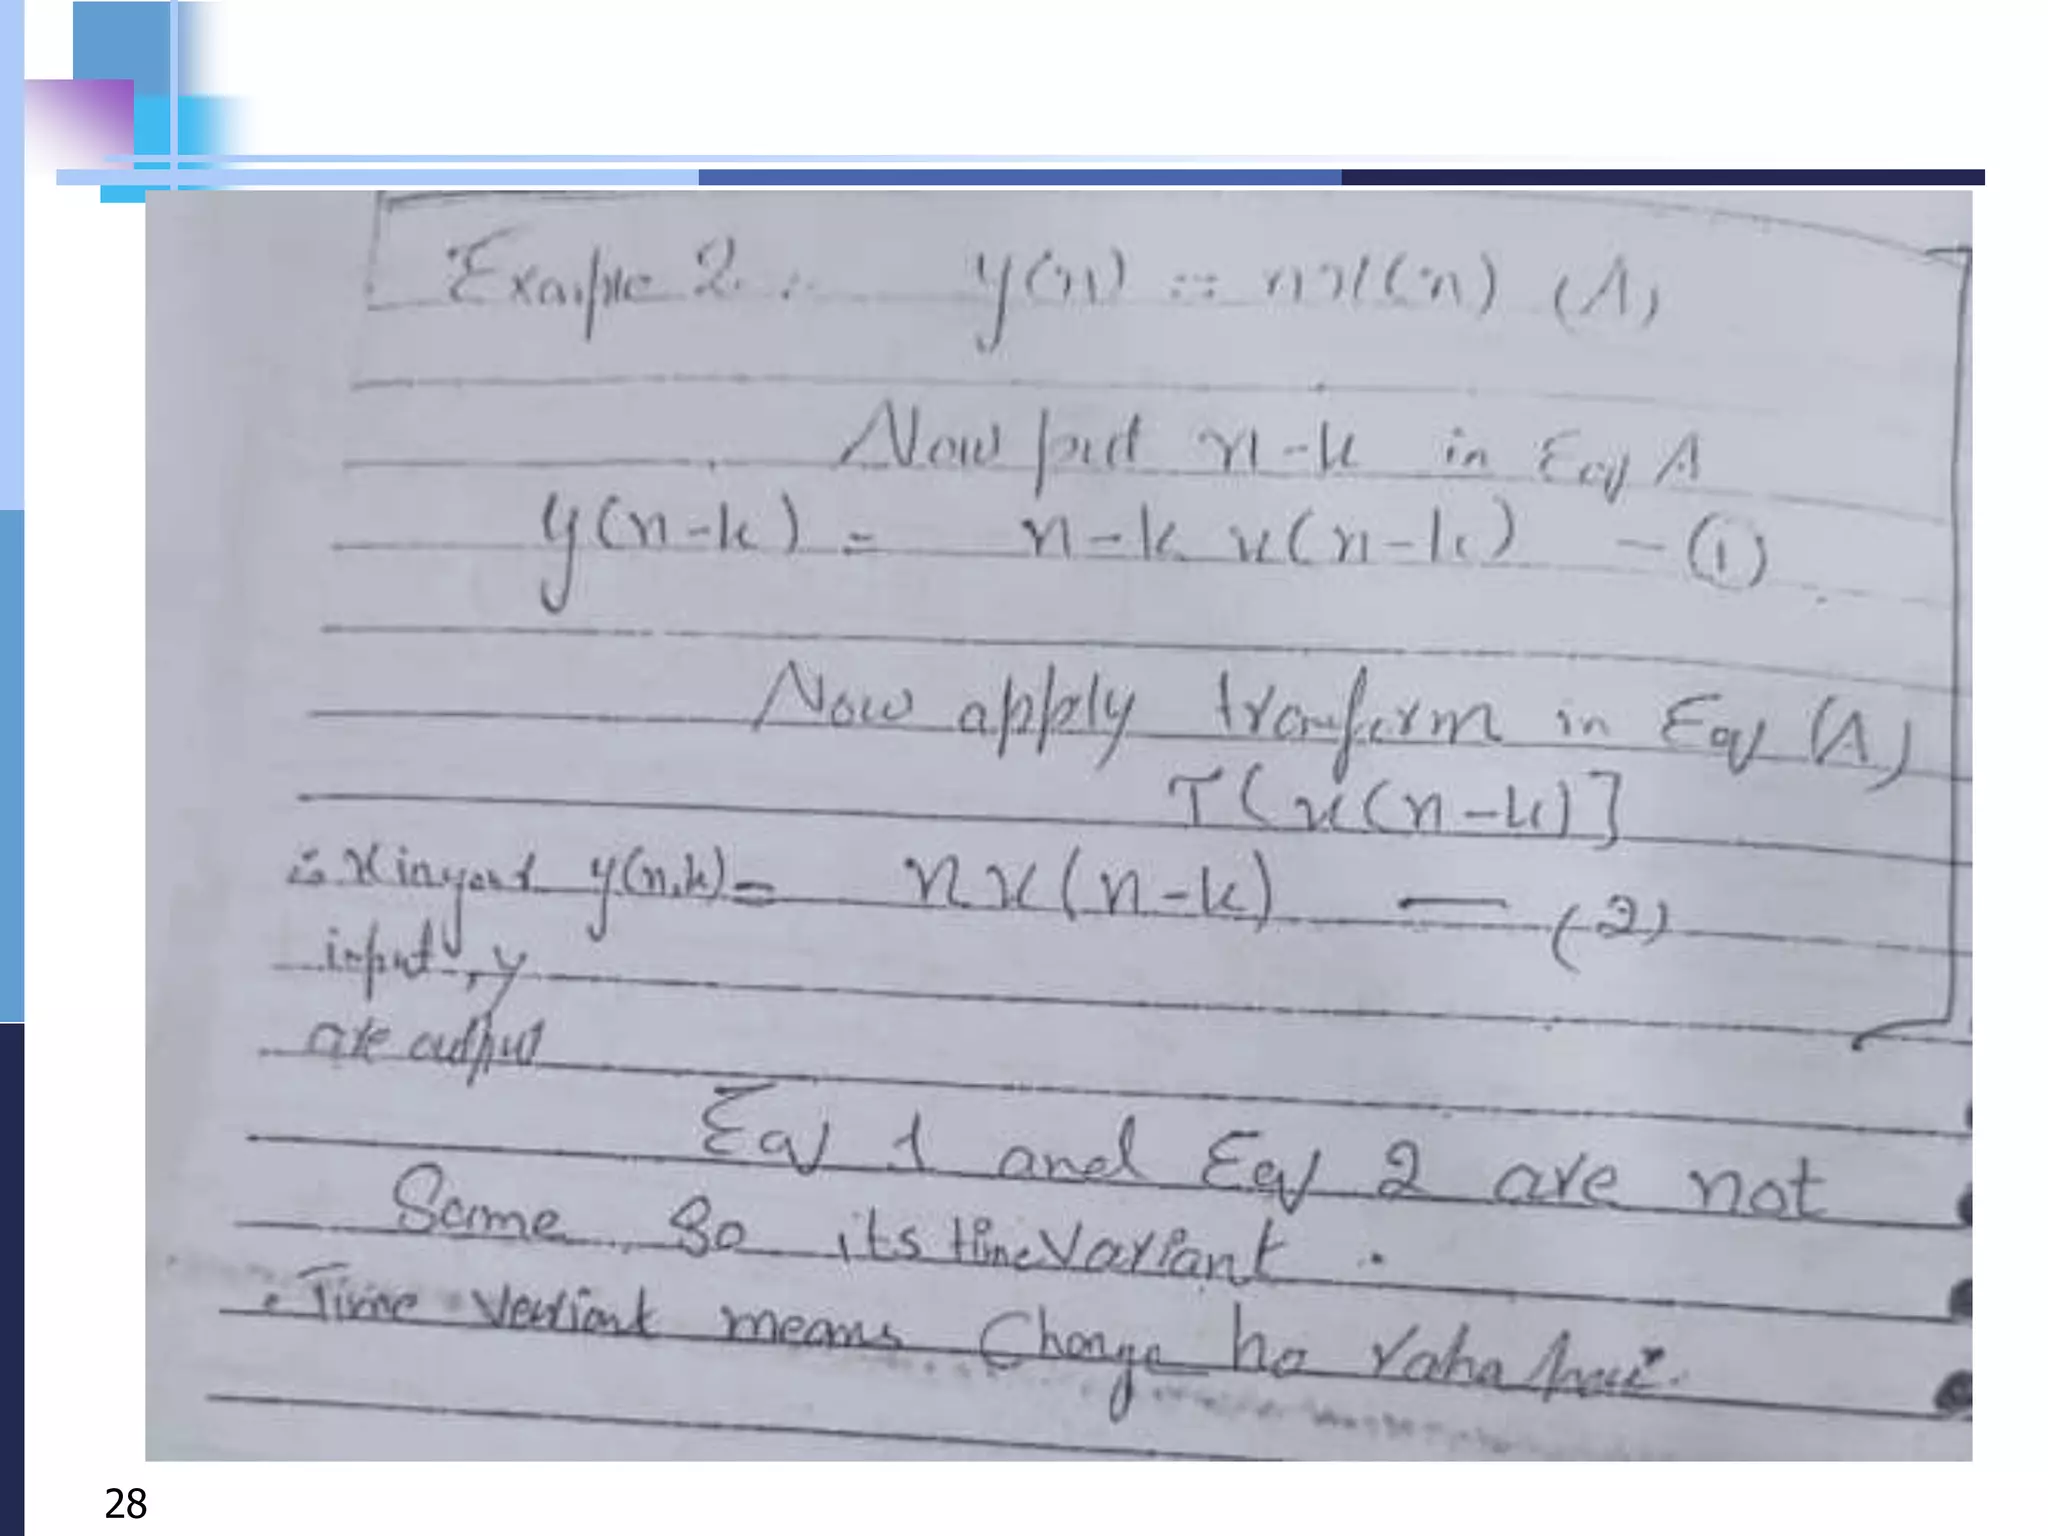 Example 2 :- y(n) = nx(n) (A)
Now put n-k in Eq A
y(n-k) = n-k x(n-k) - (1)
Now apply transform in Eq (A)
T[x(n-k)]
y(n,k) = nx(n-k) — (2)
input, y
are output
Eq 1 and Eq 2 are not
Same so its time variant.
. Time variant means Change ho raha hai.
28